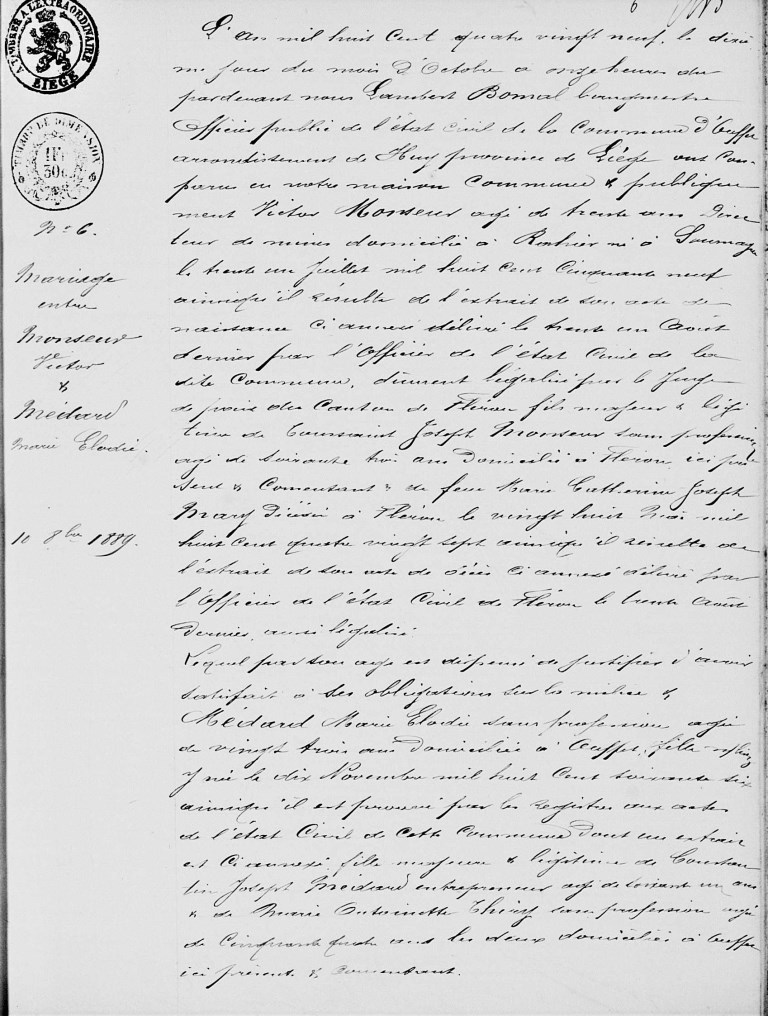 6
A TIMBRER A L'EXTRAORDINAIRE
LIEGE
TIMBRE DE DIMENSION
1F
50c
N° 6.
Mariage
entre
Monseur
Victor
&
Médard
Marie Elodie.
10 8bre 1889.
L'an mil huit cent quatre vingt neuf, le dixiè
me jour du mois d'Octobre à onze heures du
pardevant nous Lambert Bomal bourgmestre
Officier public de l'état civil de la commune d'Ouffet
arrondissement de Huy province de Liège ont com
paru en notre maison commune & publique
ment Victor Monseur agé de trente ans Direc
teur de mines domicilié à Rahier né à Soumagne
le trente un Juillet mil huit cent cinquante neuf
ainsi qu'il résulte de l'extrait de son acte de
naissance ci annexé délivré le trente un Août
dernier par l'Officier de l'état Civil de la
dite Commune, dûment légalisé par le Juge
de paix du Canton de Fléron fils majeur & légi
time de Toussaint Joseph Monseur sans profession
agé de soixante trois ans Domicilié à Fléron, ici pré
sent & Consentant & de feue Marie Catherine Joseph
Mary Décédée à Fléron le vingt huit Mai mil
huit cent quatre vingt sept ainsi qu'il résulte de
l'extrait de son acte de décès ci annexé délivré par
l'Officier de l'état Civil de Fléron le trente Août
Dernier, aussi légalisé.
Lequel par son age est dispensé de justifier d'avoir
satisfait à ses obligations sur la milice &
Médard Marie Elodie sans profession agée
de vingt trois ans Domiciliée à Ouffet, fille
y née le dix Novembre mil huit Cent soixante six
ainsi qu'il est prouvé par les registres aux actes
de l'état Civil de cette Commune Dont un extrait
est ci annexé, fille majeure & légitime de Constan
tin Joseph Médard entrepreneur agé de soixante un ans
& de Marie Antoinette Thiry sans profession agée
de Cinquante quatre ans les deux domiciliés à Ouffet
ici présent & consentant.